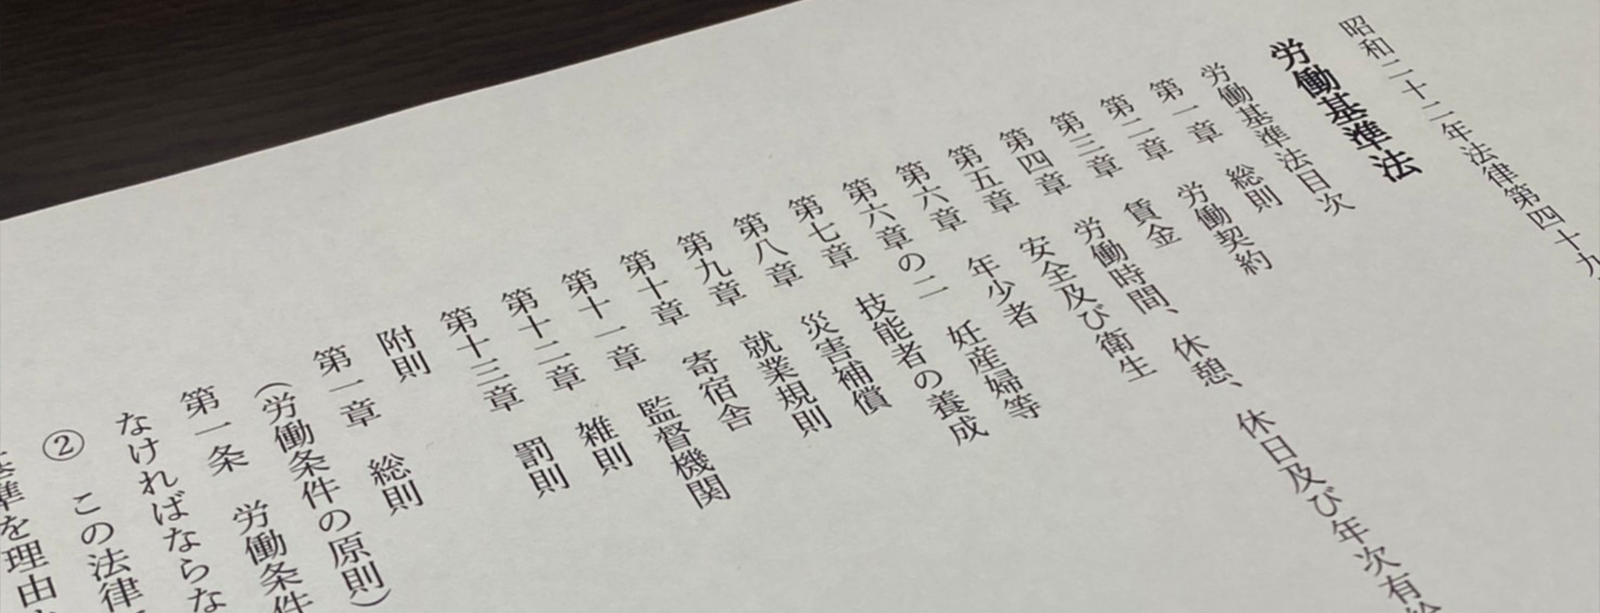 昭和二十二年法律第四十九
労働基準法
労働基準法目次
第一章 総則
第二章 労働契約
第三章 賃金
第四章 労働時間、休憩、休日及び年次有給
第五章 安全及び衛生
第六章 年少者
第六章の二 妊産婦等
第七章 技能者の養成
第八章 災害補償
第九章 就業規則
第十章 寄宿舎
第十一章 監督機関
第十二章 雑則
第十三章 罰則
附則
第一章 総則
(労働条件の原則)
第一条 労働条件
なければならな
② この法律
基準を理由